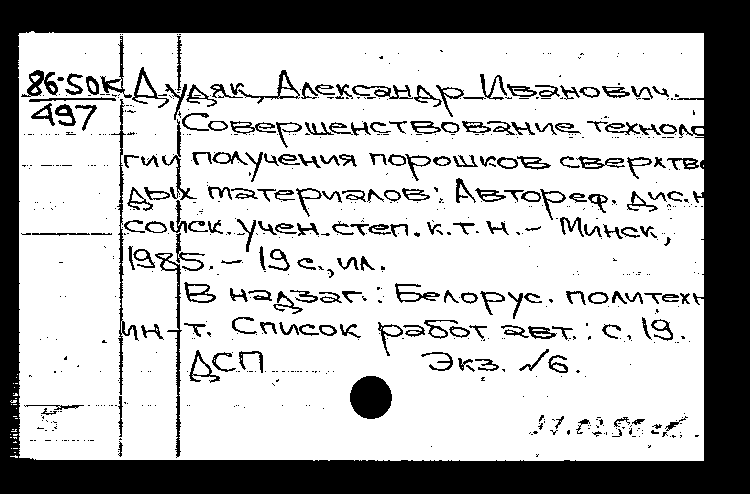 86-50к Дудяк, Александр Иванович.
497
Совершенствование техноло
гии получения порошков сверхтве
дых материалов: Автореф. дис. н
соиск. учен. степ. к. т. н. - Минск,
1985. - 19 с., ил.
В надзаг.: Белорус. политехн
ин-т. Список работ авт.: с. 19.
ДСП Экз. №6.
5